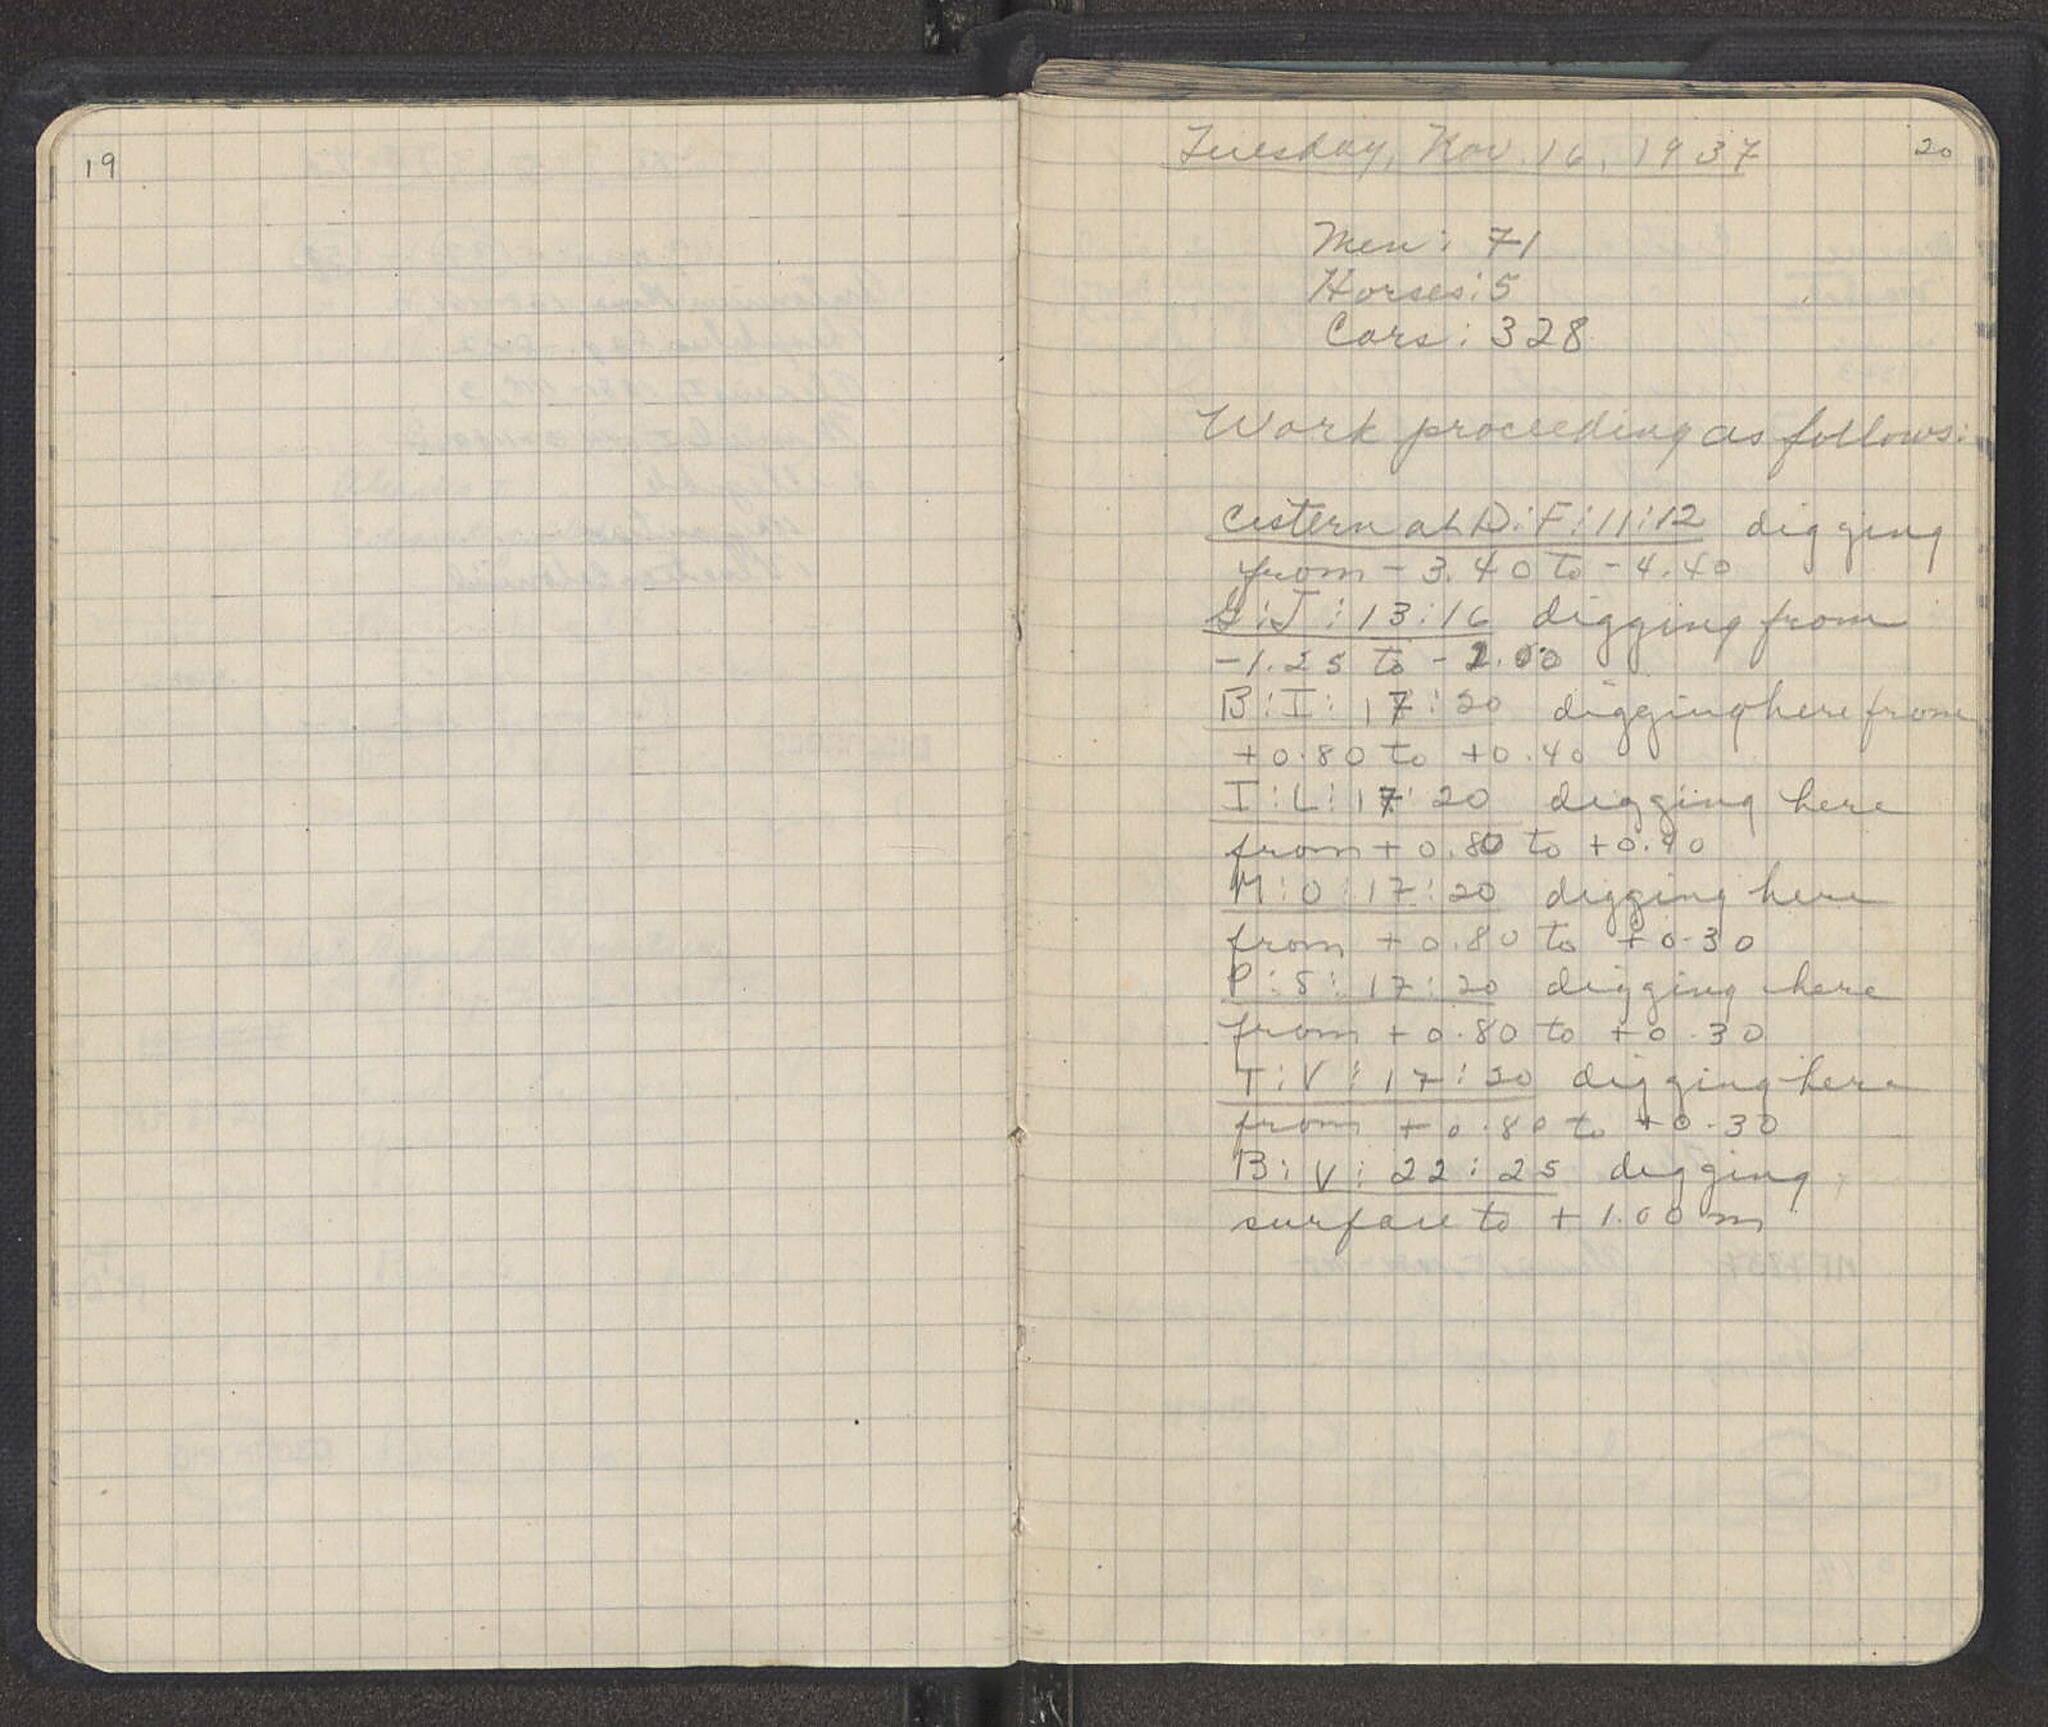 19
20
Tuesday, Nov. 16, 1937
Men: 71
Horses: 5
Cars: 328
Work proceeding as follows:
Cistern at D:F:11:12 digging
from -3.40 to -4.40
G:J:13:16 digging from
-1.25 to -2.00
B:I:17:20 digging here from
+0.80 to +0.40
I:L:17:20 digging here
from +0.80 to +0.40
M:O:17:20 digging here
from +0.80 to +0.30
P:S:17:20 digging here
from +0.80 to +0.30
T:V:17:20 digging here
from +0.80 to +0.30
B:V:22:25 digging
surface to +1.00 m